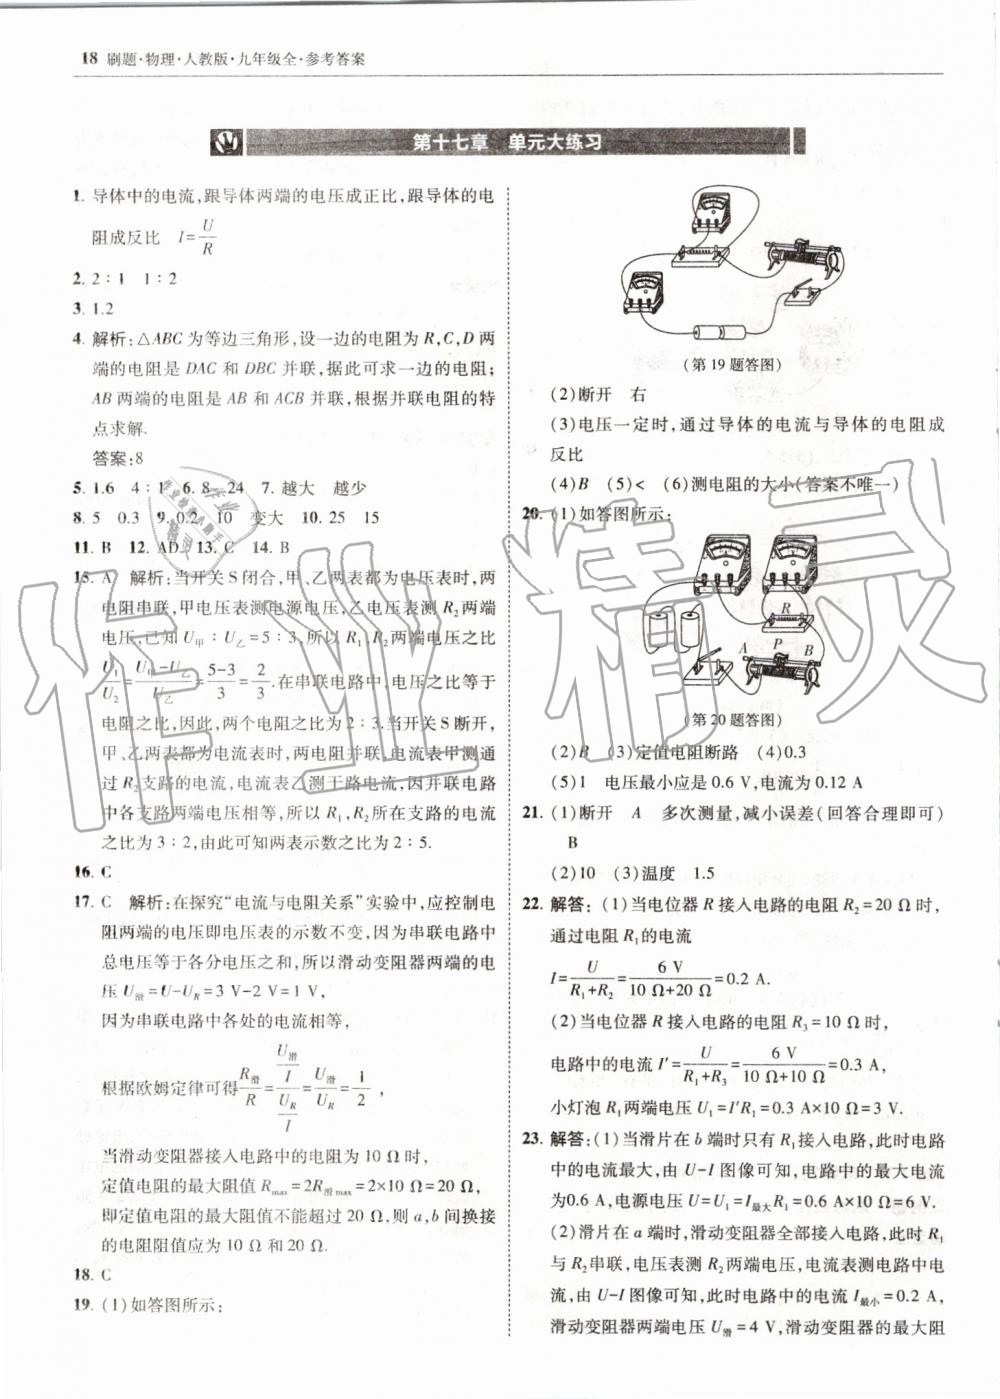 18 刷题·物理·人教版·九年级全·参考答案
第十七章 单元大练习
1. 导体中的电流,跟导体两端的电压成正比,跟导体的电
阻成反比 I=U/R
2. 2∶1 1∶2
3. 1.2
4. 解析:△ABC为等边三角形,设一边的电阻为R,C、D两
端的电阻是DAC和DBC并联,据此可求一边的电阻;
AB两端的电阻是AB和ACB并联,根据并联电阻的特
点求解.
答案:8
5. 1.6 4∶1 6. 8 24 7. 越大 越少
8. 5 0.3 9. 0.2 10 变大 10. 25 15
11. B 12. AD 13. C 14. B
15. A 解析:当开关S闭合,甲、乙两表都为电压表时,两
电阻串联,甲电压表测电源电压,乙电压表测R₂两端
电压,已知U甲∶U乙=5∶3,所以R₁、R₂两端电压之比
U₁/U₂=(U甲-U乙)/U乙=(5-3)/3=2/3.在串联电路中,电压之比等于
电阻之比,因此,两个电阻之比为2∶3.当开关S断开,
甲、乙两表都为电流表时,两电阻并联,电流表甲测通
过R₂支路的电流,电流表乙测干路电流,因并联电路
中各支路两端电压相等,所以R₁、R₂所在支路的电流
之比为3∶2,由此可知两表示数之比为2∶5.
16. C
17. C 解析:在探究“电流与电阻关系”实验中,应控制电
阻两端的电压即电压表的示数不变,因为串联电路中
总电压等于各分电压之和,所以滑动变阻器两端的电
压U滑=U-U_R=3 V-2 V=1 V,
因为串联电路中各处的电流相等,
根据欧姆定律可得R滑/R=(U滑/I)/(U_R/I)=U滑/U_R=1/2,
当滑动变阻器接入电路中的电阻为10 Ω时,
定值电阻的最大阻值R_max=2R滑max=2×10 Ω=20 Ω,
即定值电阻的最大阻值不能超过20 Ω,则a、b间换接
的电阻阻值应为10 Ω和20 Ω.
18. C
19. (1)如答图所示:
(第19题答图)
(2)断开 右
(3)电压一定时,通过导体的电流与导体的电阻成
反比
(4)B (5)< (6)测电阻的大小(答案不唯一)
20. (1)如答图所示:
R
A P B
(第20题答图)
(2)B (3)定值电阻断路 (4)0.3
(5)1 电压最小应是0.6 V,电流为0.12 A
21. (1)断开 A 多次测量,减小误差(回答合理即可)
B
(2)10 (3)温度 1.5
22. 解答:(1)当电位器R接入电路的电阻R₂=20 Ω时,
通过电阻R₁的电流
I=U/(R₁+R₂)=6 V/(10 Ω+20 Ω)=0.2 A.
(2)当电位器R接入电路的电阻R₃=10 Ω时,
电路中的电流I′=U/(R₁+R₃)=6 V/(10 Ω+10 Ω)=0.3 A,
小灯泡R₁两端电压U₁=I′R₁=0.3 A×10 Ω=3 V.
23. 解答:(1)当滑片在b端时只有R₁接入电路,此时电路
中的电流最大,由U-I图像可知,电路中的最大电流
为0.6 A,电源电压U=U₁=I最大R₁=0.6 A×10 Ω=6 V.
(2)滑片在a端时,滑动变阻器全部接入电路,此时R₁
与R₂串联,电压表测R₂两端电压,电流表测电路中电
流,由U-I图像可知,此时电路中的电流I最小=0.2 A,
滑动变阻器两端电压U滑=4 V,滑动变阻器的最大阻
作业精灵